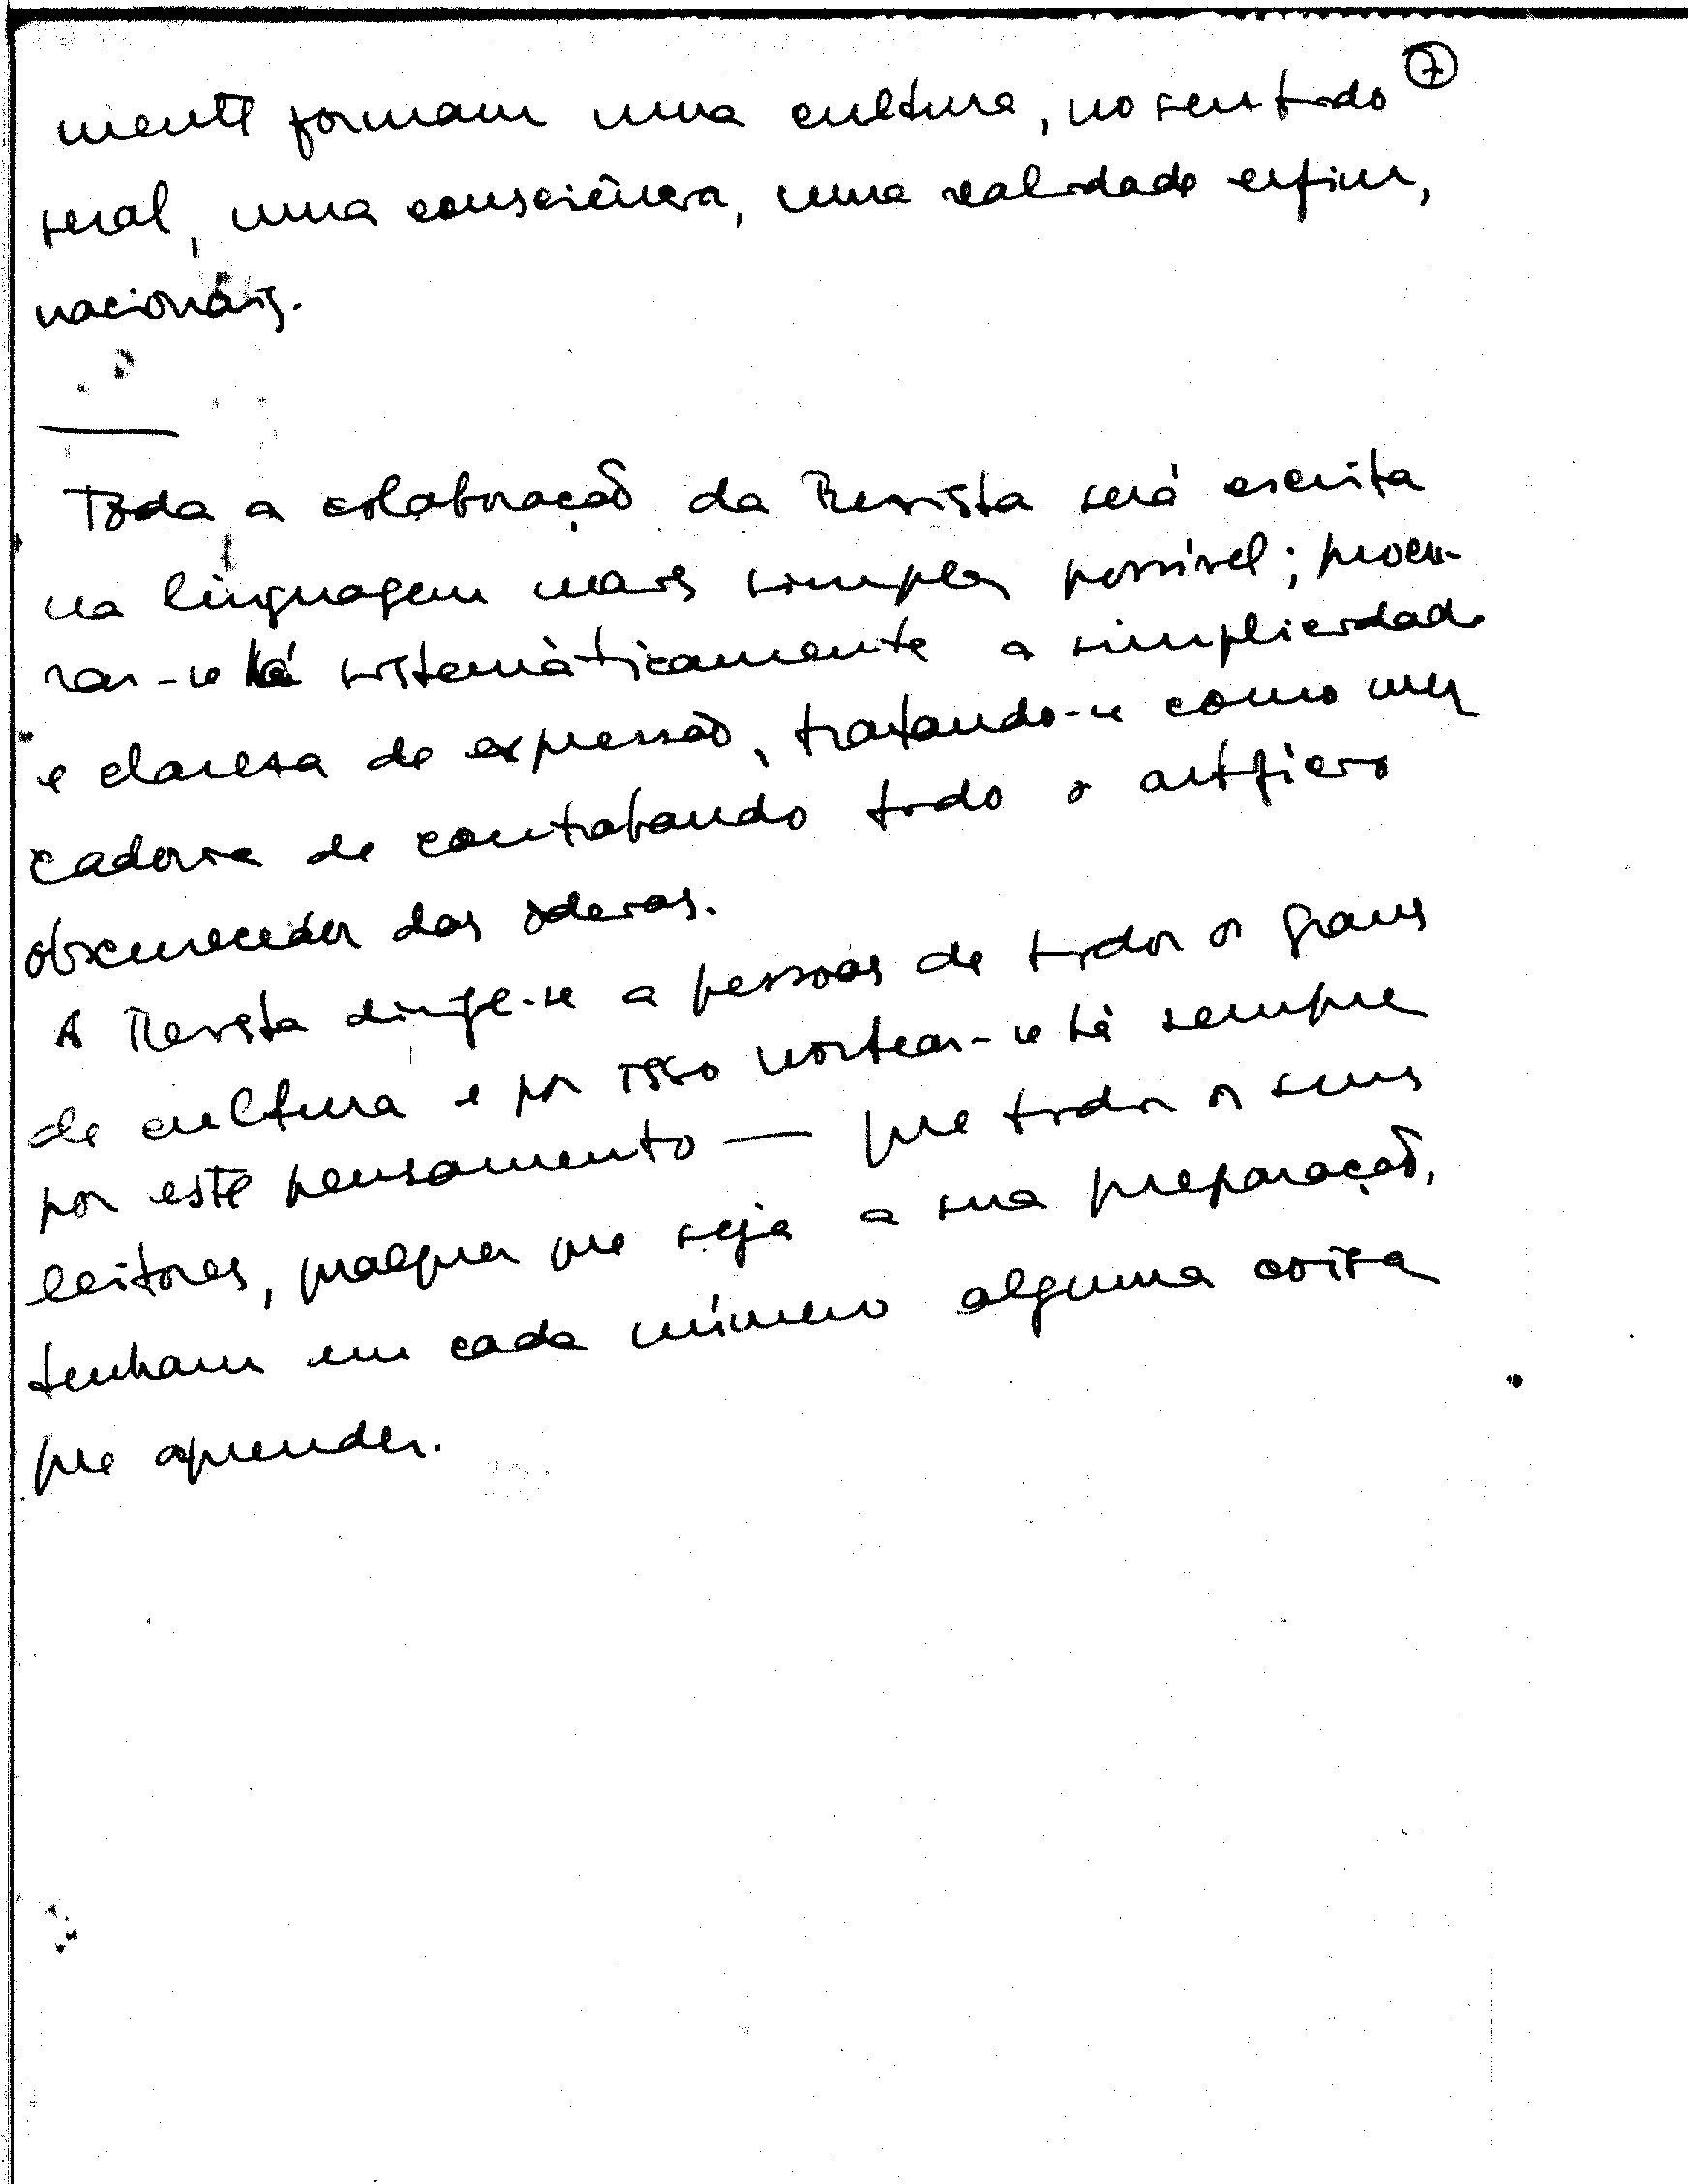 7
mente formam uma cultura, no sentido
geral, uma consciência, uma realidade enfim,
nacionais.
Toda a colaboração da Revista será escrita
na linguagem mais simples possível; procu-
rar-se há sistemàticamente a simplicidade
e claresa de expressão, tratando-se como mer
cadoria de contrabando todo o artificio
obscurecedor das ideias.
A Revista dirige-se a pessoas de todos os graus
de cultura e por isso nortear-se há sempre
por este pensamento — que todos os seus
leitores, qualquer que seja a sua preparação,
tenham em cada número alguma coisa
que aprender.